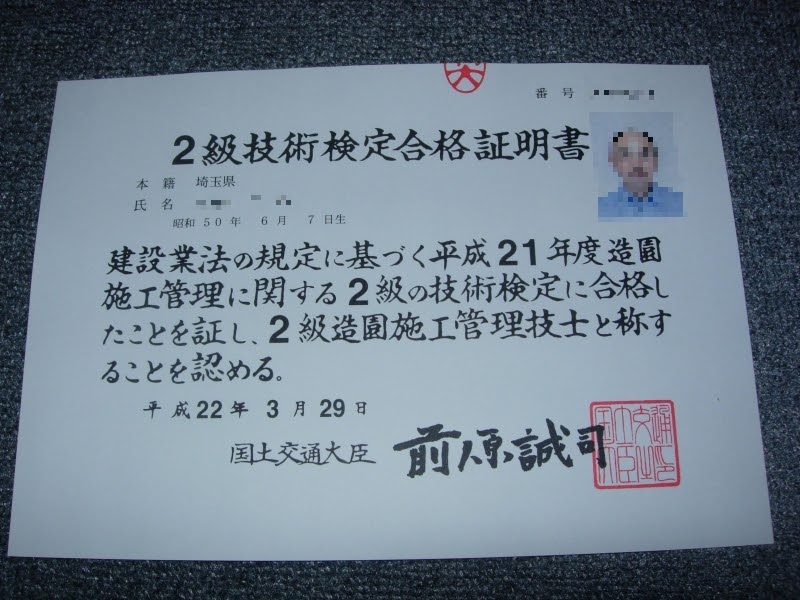 番号
2級技術検定合格証明書
本籍 埼玉県
氏名
昭和50年 6月 7日生
建設業法の規定に基づく平成21年度造園
施工管理に関する2級の技術検定に合格し
たことを証し、2級造園施工管理技士と称す
ることを認める。
平成22年 3月 29日
国土交通大臣 前原誠司